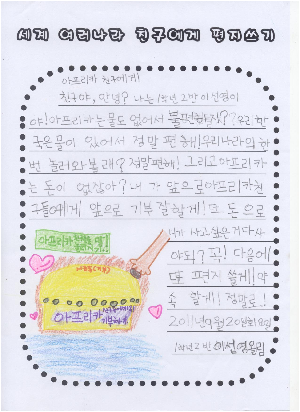 세계 여러나라 친구에게 편지쓰기
아프리카 친구에게!
친구야, 안녕? 나는 1학년 2반 이선영이
야! 아프리카는 물도 없어서 불편하지? 우리 한
국은 물이 있어서 정말 편해! 우리나라의 한
번 놀러와 볼래? 정말 편해! 그리고 아프리카
는 돈이 없잖아? 내가 앞으로 아프리카 친
구들에게 앞으로 기부 잘할게! 또 돈으로
사고 싶은거 다 사
아프리카
알았지? 꼭! 다음에
또 편지 쓸게! 약
속 할게! 정말로!
아프리카
기부하자
1학년 2반 이선영 올림